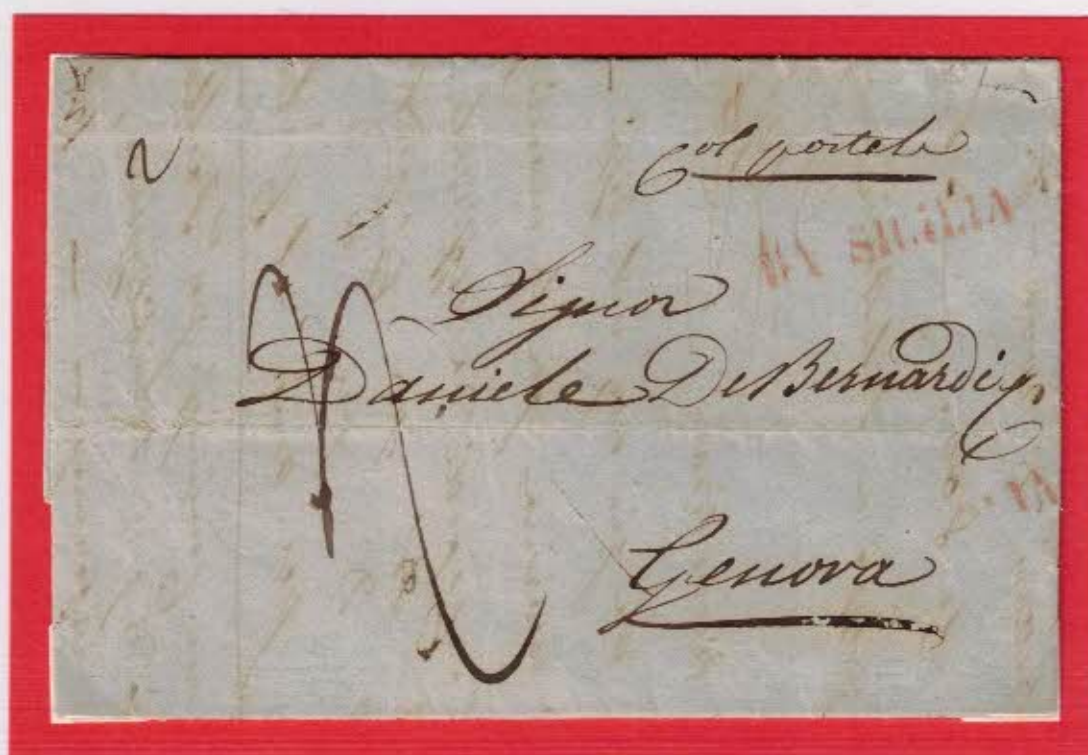 2
Col postale
DA SICILIA
Signor
Daniele De Bernardi
Genova